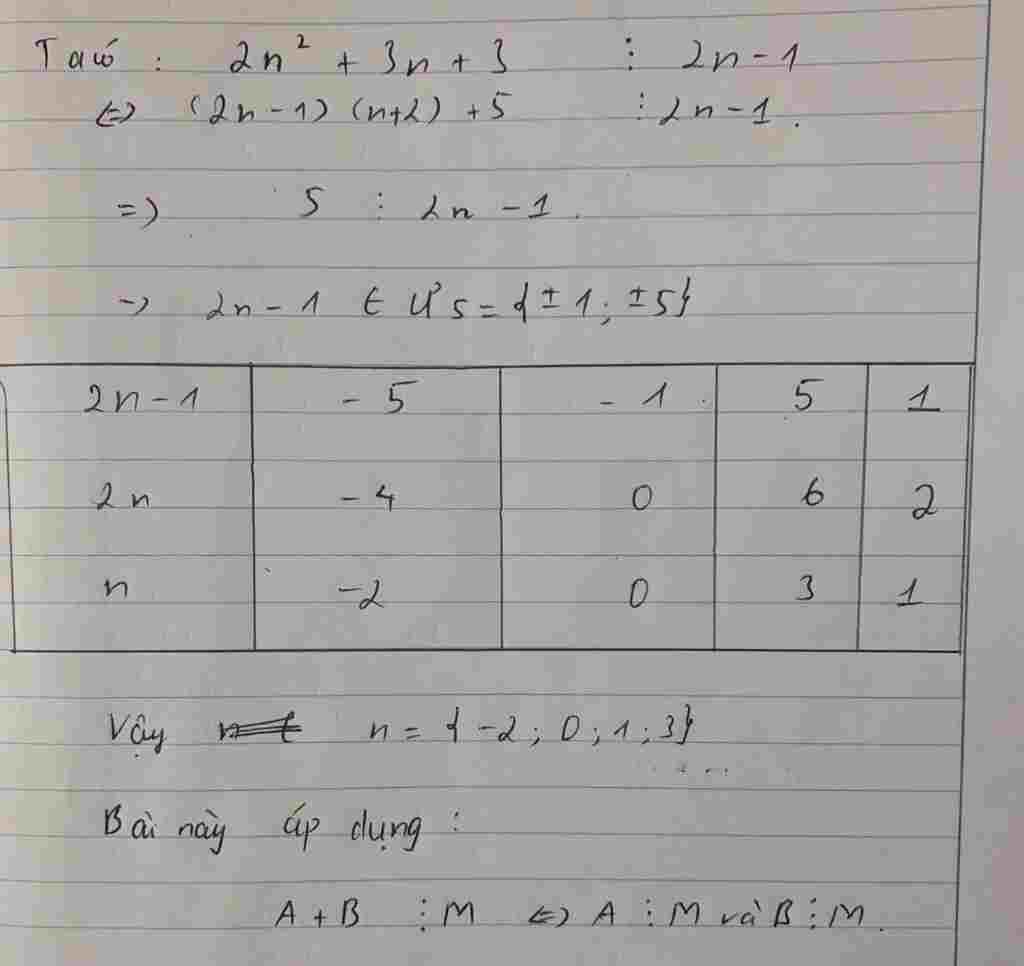 Ta có : 2n² + 3n + 3 ⋮ 2n - 1
<=> (2n - 1) (n+2) + 5 ⋮ 2n - 1.
=> 5 ⋮ 2n - 1.
-> 2n - 1 ∈ Ư5 = {± 1; ± 5}
2n - 1 - 5 - 1 5 1
2n - 4 0 6 2
n -2 0 3 1
Vậy n = { -2; 0; 1; 3}
Bài này áp dụng :
A + B ⋮ M <=> A ⋮ M và B ⋮ M.